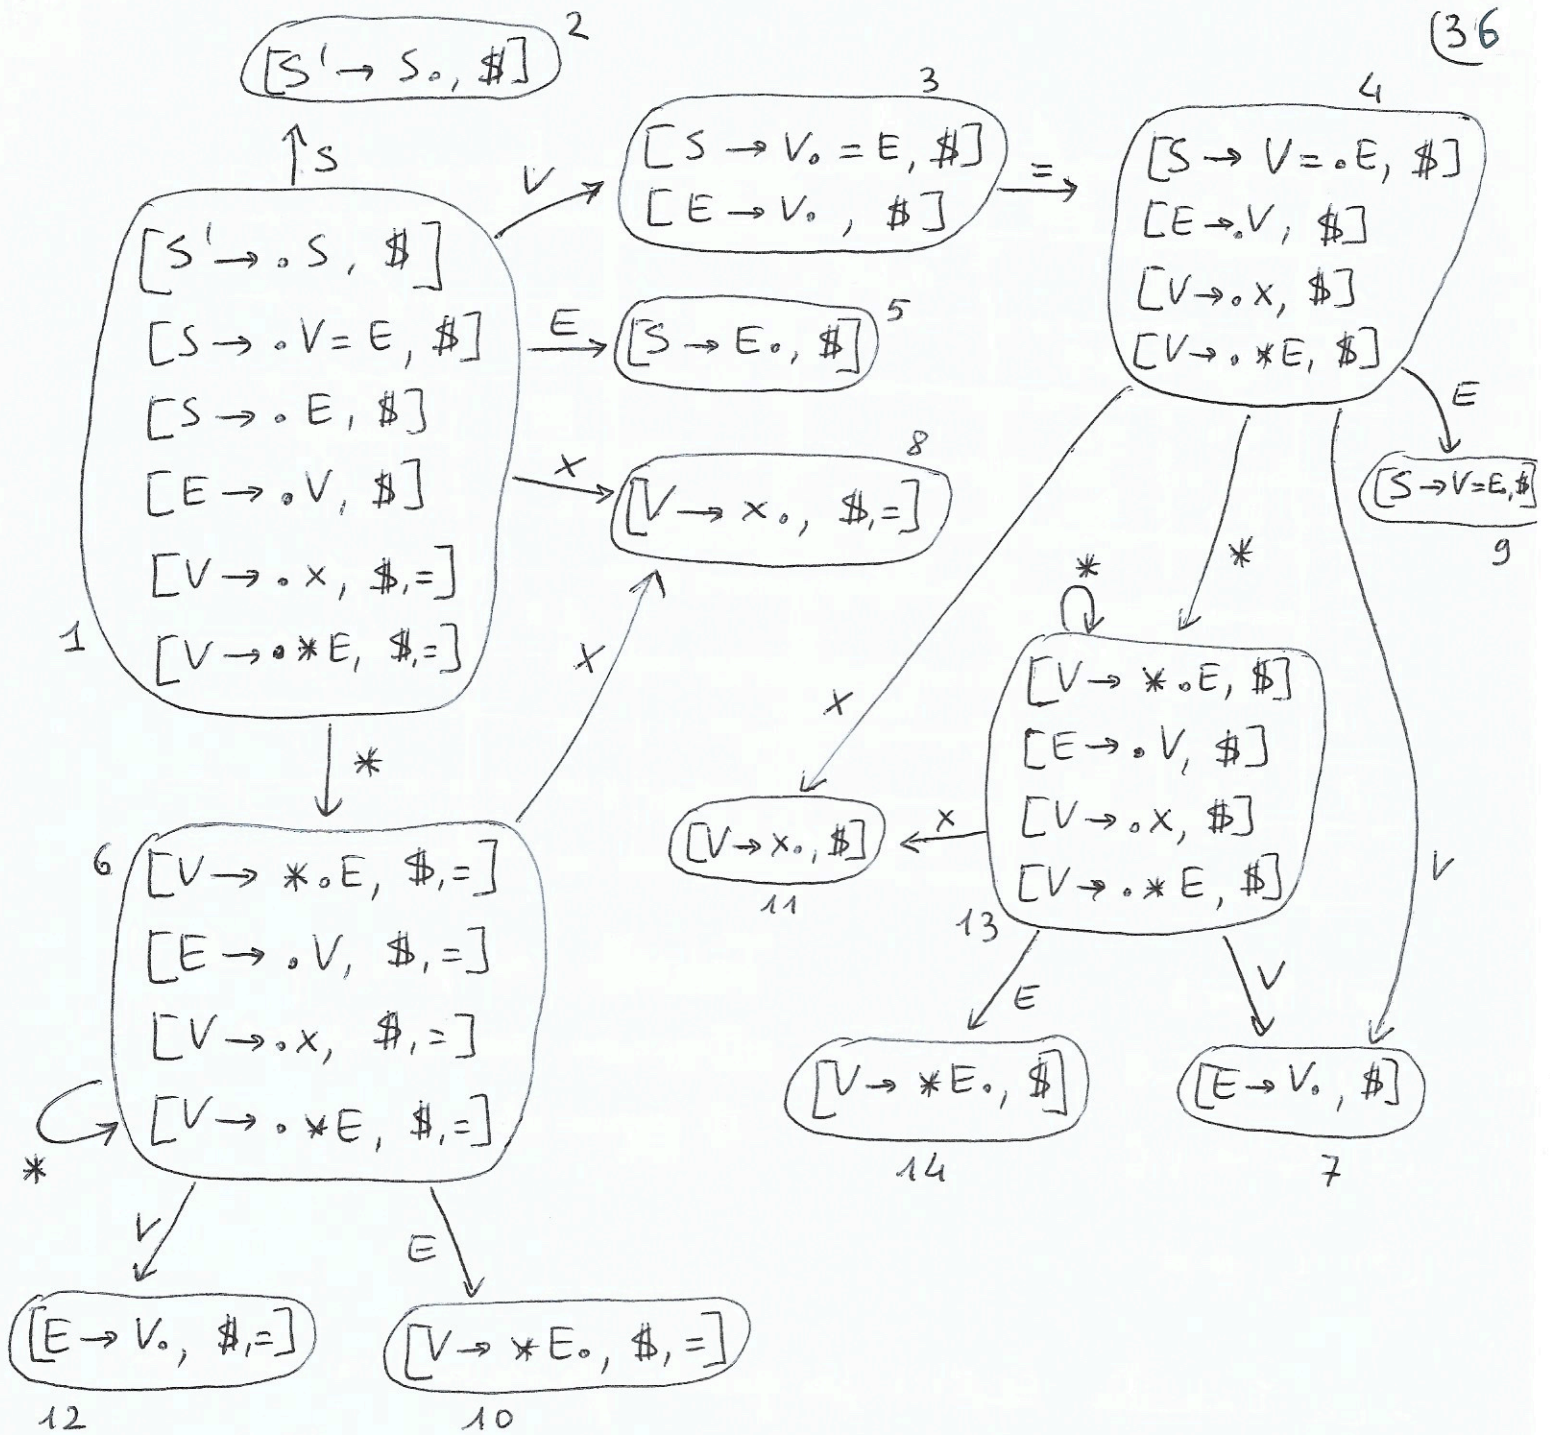 36
2
[S' → S., $]
↑ S
3
[S → V. = E, $]
[E → V. , $]
V
=
4
[S → V = .E, $]
[E → .V, $]
[V → .x, $]
[V → .*E, $]
1
[S' → .S, $]
[S → .V = E, $]
[S → .E, $]
[E → .V, $]
[V → .x, $,=]
[V → .*E, $,=]
E
5
[S → E., $]
x
8
[V → x., $,=]
E
[S → V=E., $]
9
*
*
x
x
*
V
13
[V → *.E, $]
[E → .V, $]
[V → .x, $]
[V → .*E, $]
x
[V → x., $]
11
6
[V → *.E, $,=]
[E → .V, $,=]
[V → .x, $,=]
[V → .*E, $,=]
*
E
V
[V → *E., $]
14
[E → V., $]
7
V
E
[E → V., $,=]
12
[V → *E., $,=]
10